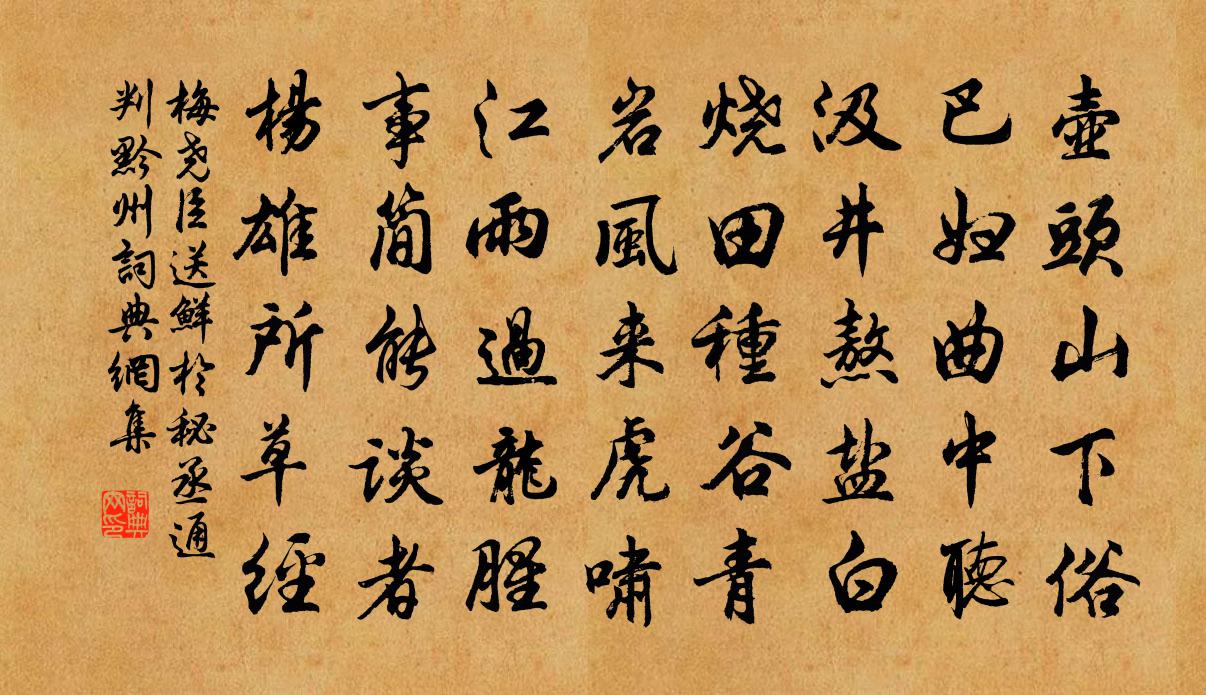 壺頭山下俗
巴妇曲中聴
汲井熬盐白
烧田種谷青
岩風来虎嘯
江雨過龍腥
事简能谈者
楊雄所草經
梅尧臣送鮮於秘丞通
判黔州詞典網集
詞典網印